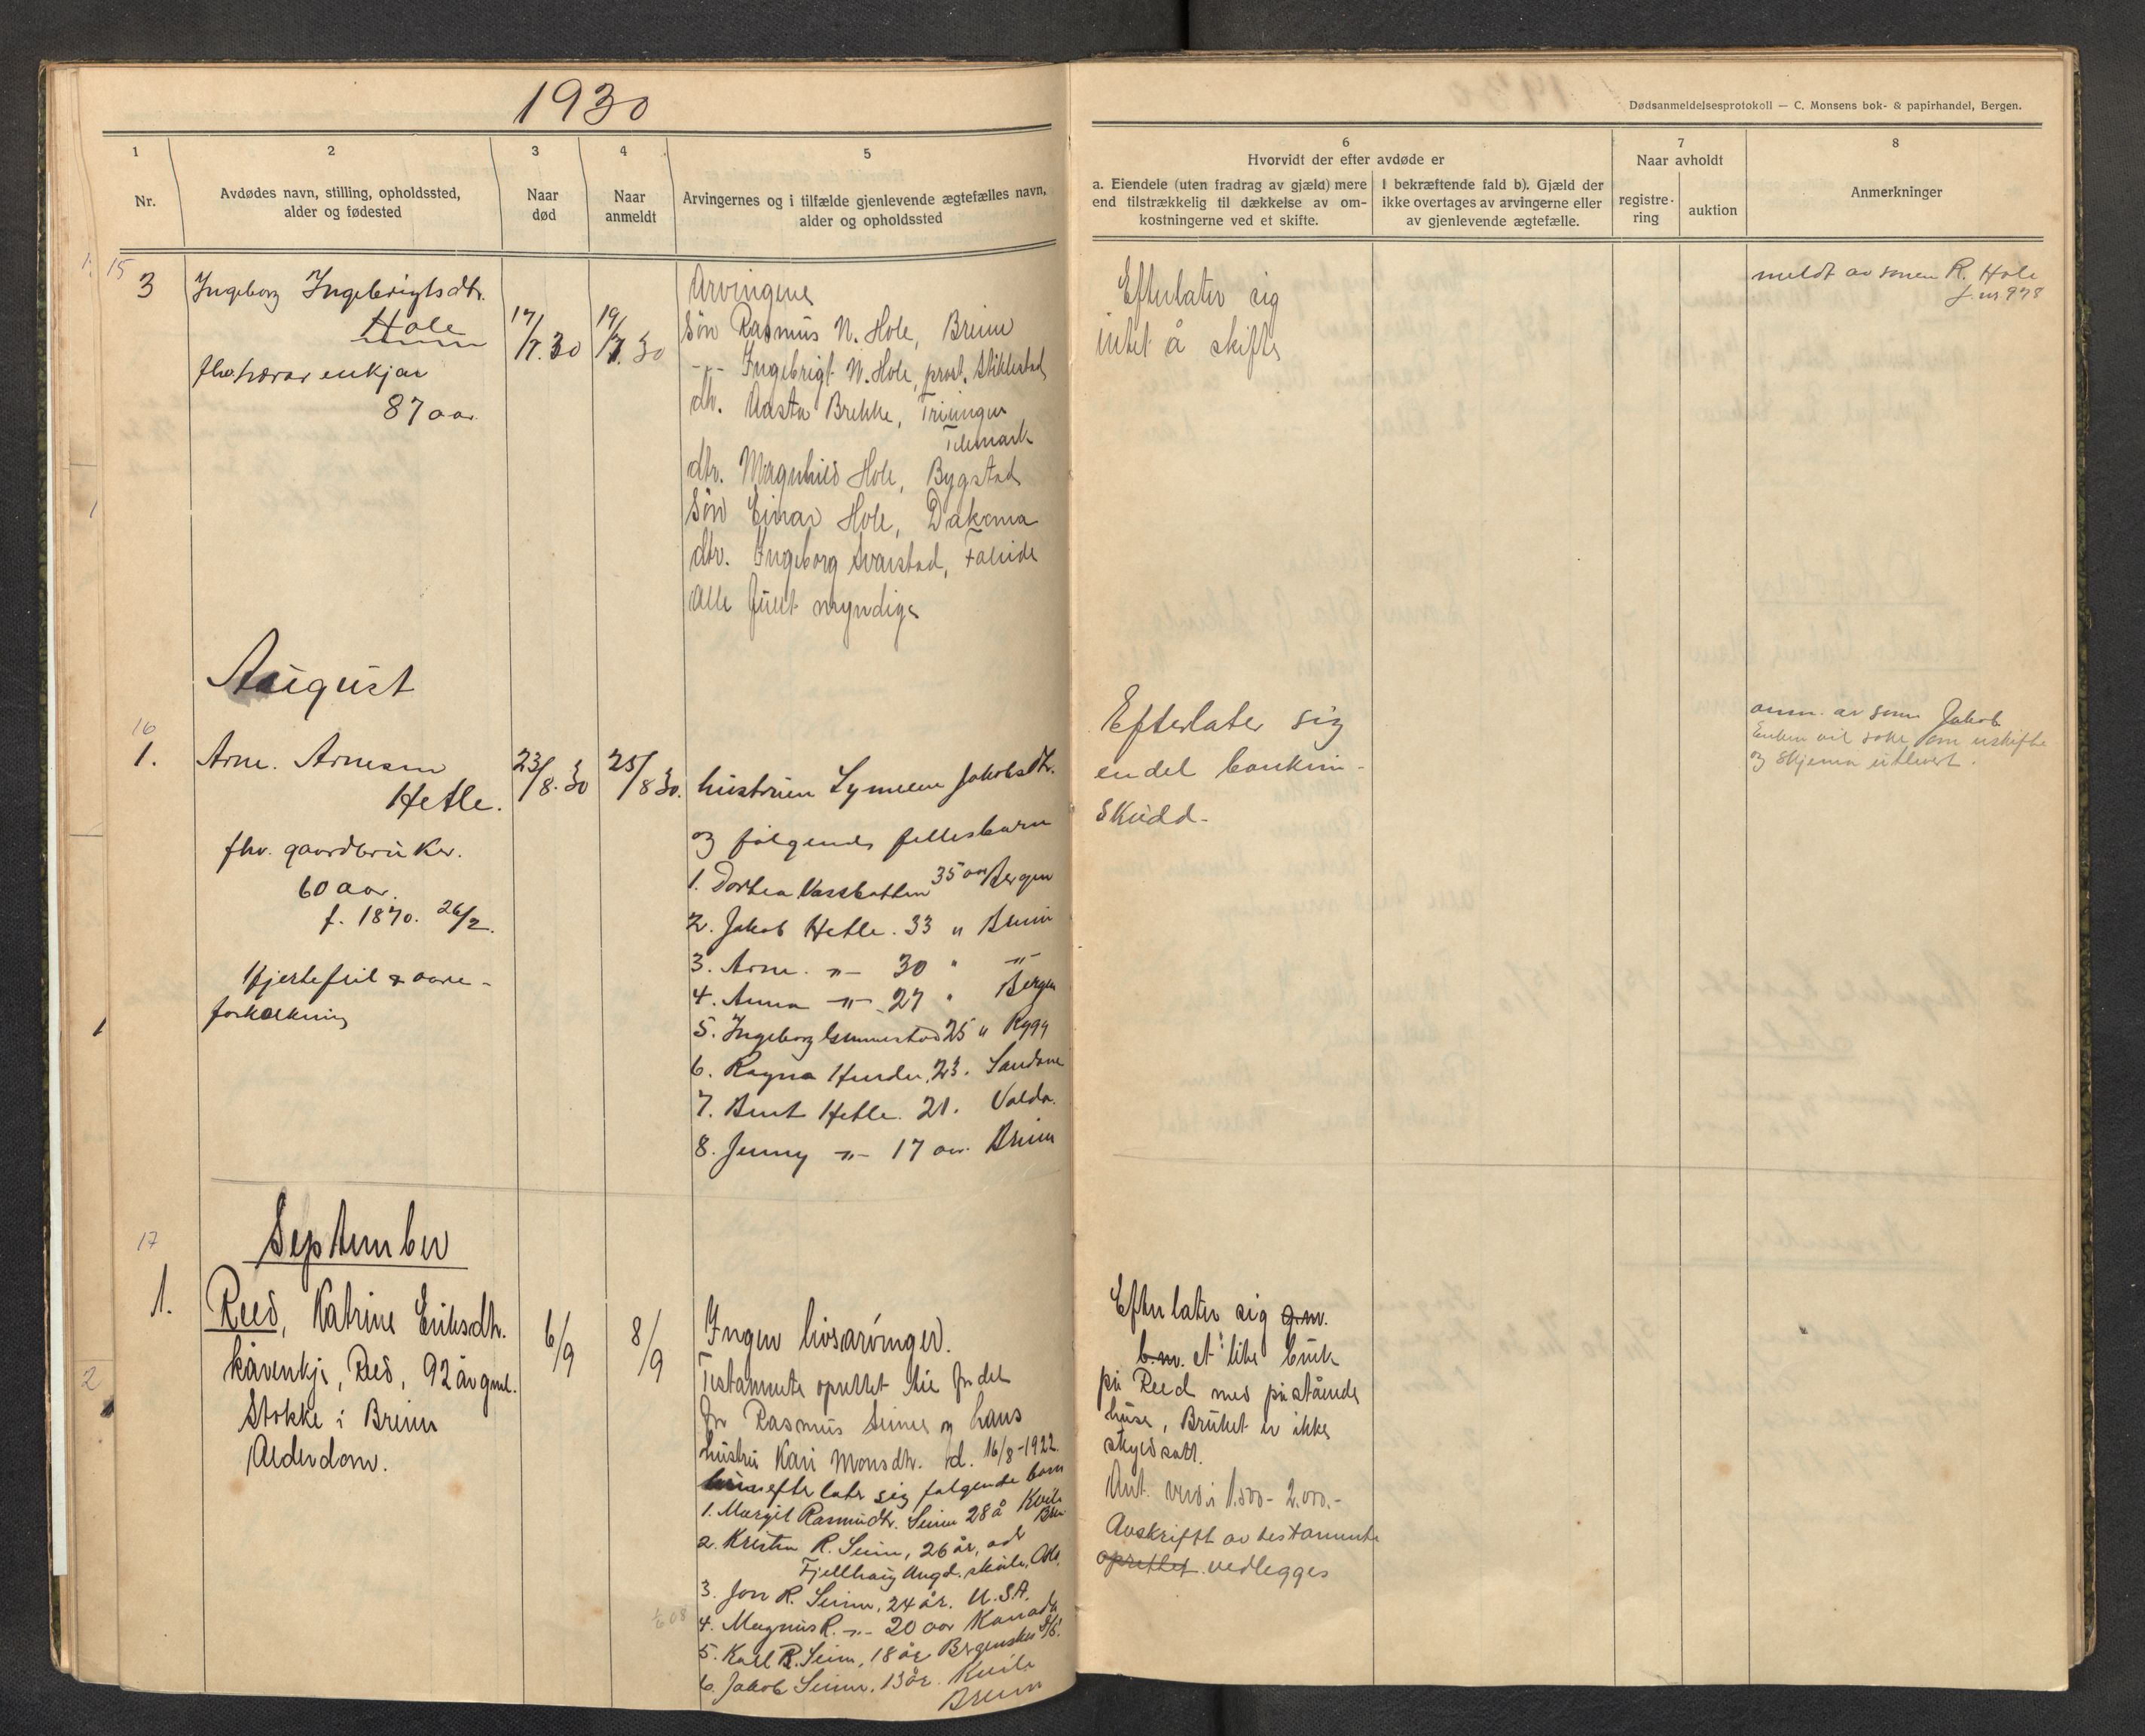 1930
Dødsanmeldelsesprotokoll — C. Monsens bok- & papirhandel, Bergen.
1
Nr.
2
Avdødes navn, stilling, opholdssted,
alder og fødested
3
Naar
død
4
Naar
anmeldt
5
Arvingernes og i tilfælde gjenlevende ægtefælles navn,
alder og opholdssted
6
Hvorvidt der efter avdøde er
a. Eiendele (uten fradrag av gjæld) mere
end tilstrækkelig til dækkelse av om-
kostningerne ved et skifte.
I bekræftende fald b). Gjæld der
ikke overtages av arvingerne eller
av gjenlevende ægtefælle.
7
Naar avholdt
registre-
ring
auktion
8
Anmerkninger
15
3
Ingeborg Ingebrigtsdtr.
Hole
enkjar
87 aar
17/7.30
19/7.30
Arvingene
Søn Rasmus N. Hole, Breim
-"- Ingebrigt N. Hole, prost, Stiklestad
dtr. Aasta Brekke,
Telemark
dtr. Magnhild Hole, Bygstad
Søn Einar Hole, Dakoma
dtr. Ingeborg Svarstad,
Alle fullt myndige
Efterlater sig
intet å skifte
meldt av sønen R. Hole
j.nr 978
August
16
1.
Arne. Arnesen
Hetle.
fhv. gaardbruker.
60 aar.
f. 1870. 26/2.
Hjertefeil & aare-
forkalkning
23/8.30
25/8 30.
hustruen Jakobsdtr.
og følgende fellesbarn
1. Dortea Vassbotten 35 aar Bergen
2. Jakob Hetle. 33 " Breim
3. Arne. -"- 30 " -"-
4. Anna -"- 27 " Bergen
5. Ingeborg 25 " Rygg
6. Ragna 23. Sandane
7. Bent Hetle. 21. Volda.
8. Jenny -"- 17 aar. Breim
Efterlater sig
en del bankinn-
skudd.
anm. av sønn Jakob
Enken vil søke om uskifte
og skjema utlevert.
17
September
1.
Reed, Katrine Eriksdtr.
kårenkje, Reed, 92 år gml.
Stokke i Breim
Alderdom.
6/9
8/9
Ingen livsarvinger.
Testamente oprettet til fordel
for Rasmus Seime og hans
hustru Kari Monsdtr. d. 16/8-1922
efterlater sig følgende barn
1. Margit Rasmusdtr. Seim 28 å Kvile
Breim
2. Kristen R. Seim, 26 år, adr
Fjellhaug Ungd. skule, Oslo.
3. Jon R. Seim, 24 år. U.S.A.
4. Magnus R. -"- 20 aar Kanada
5. Karl R. Seim, 18 år Bergenske D/S.
6. Jakob Seim, 13 år. Kvile
Breim
Efterlater sig g.nr.
b.nr. et lite bruk
på Reed med påstående
huse, Bruket er ikke
skyldsatt.
Ant. verdi 1.500 - 2.000.-
Avskrift av testamente
oprettet vedlegges